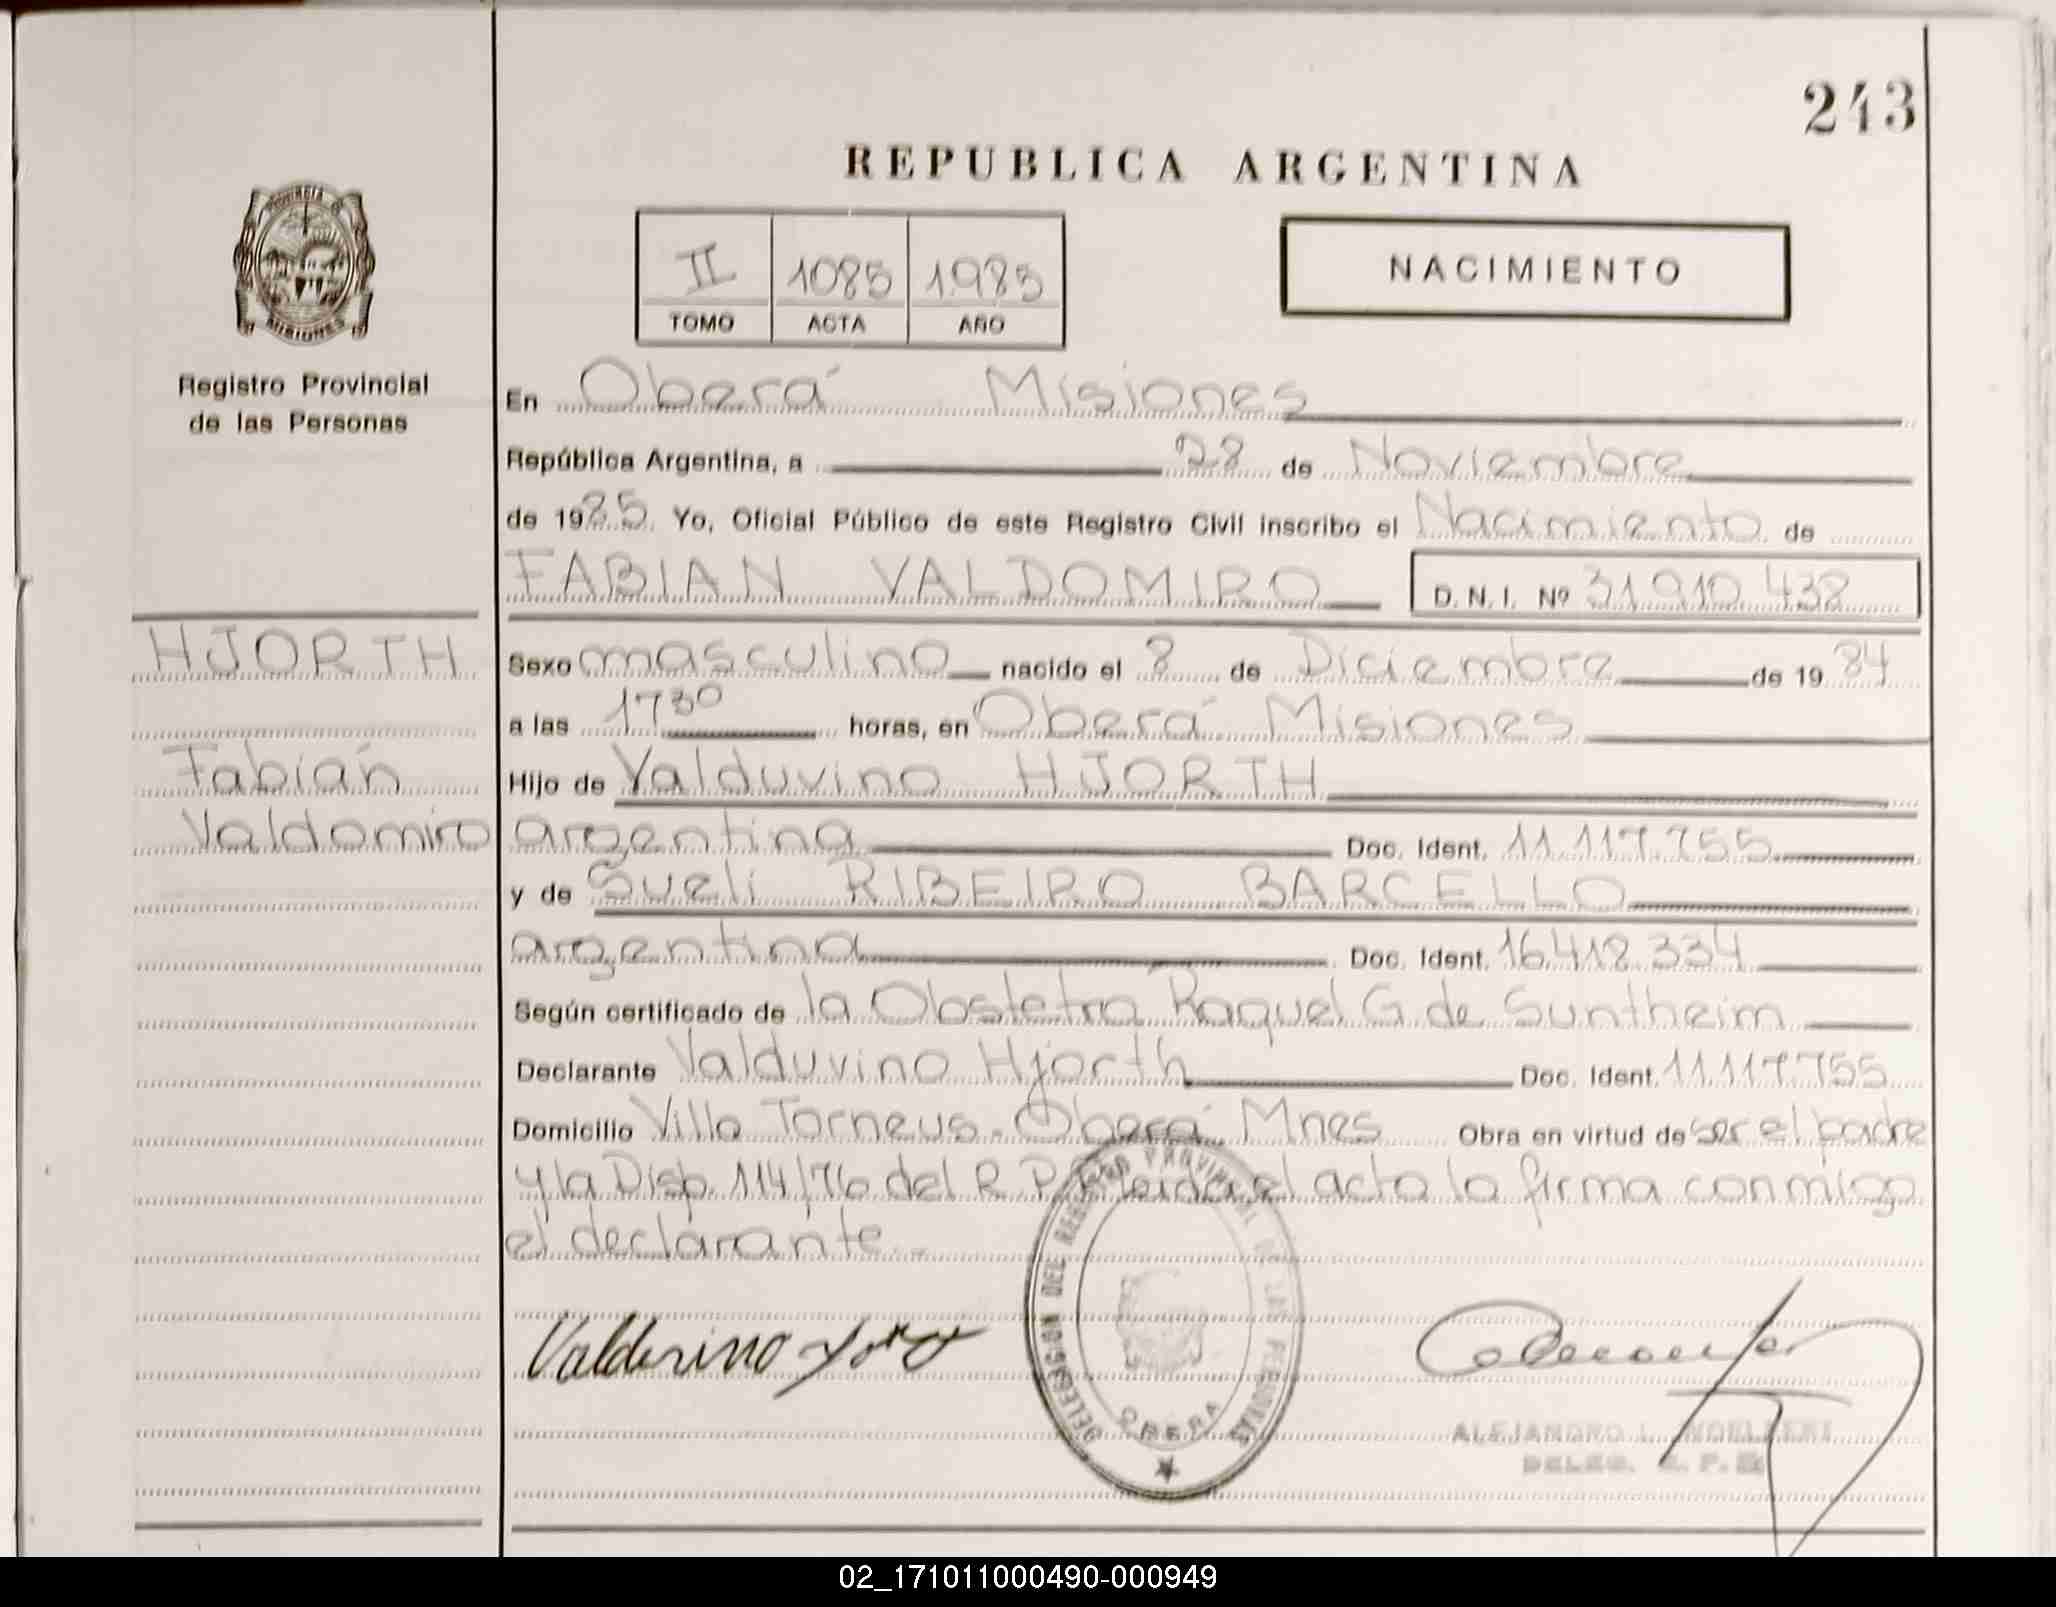 243
REPUBLICA ARGENTINA
II 1085 1985
TOMO ACTA AÑO
NACIMIENTO
PROVINCIA DE
MISIONES
Registro Provincial
de las Personas
HJORTH
Fabián
Valdomiro
En Oberá Misiones
República Argentina, a 28 de Noviembre
de 1985. Yo, Oficial Público de este Registro Civil inscribo el Nacimiento de
FABIAN VALDOMIRO D.N.I. Nº 31.910.438
Sexo masculino nacido el 8 de Diciembre de 1984
a las 1730 horas, en Oberá Misiones
Hijo de Valduvino HJORTH
argentina Doc. Ident. 11.117.755
y de Sueli RIBEIRO BARCELLO
argentina Doc. Ident. 16.418.334
Según certificado de la Obstetra Raquel G. de Suntheim
Declarante Valduvino Hjorth Doc. Ident. 11.117.755
Domicilio Villa Torneus. Oberá Mnes Obra en virtud de ser el padre
y la Disp. 114/76 del R.P.P. leída el acta la firma conmigo
el declarante.-
DELEGACION DEL REGISTRO PROVINCIAL DE LAS PERSONAS
OBERA
ALEJANDRO L.
DELEG. R. P. P.
02_171011000490-000949